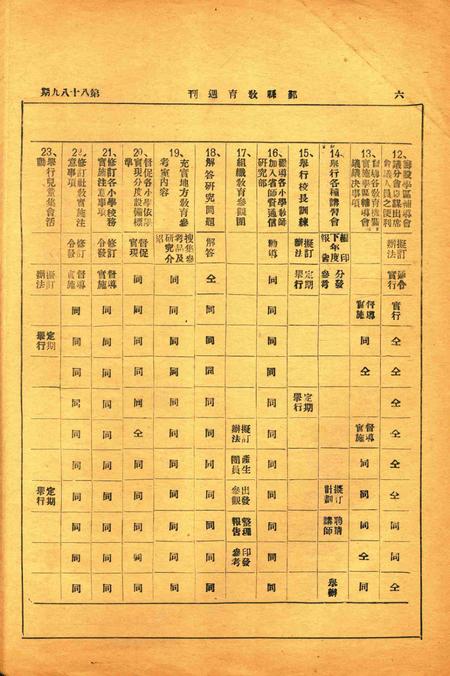 六
鄞縣教育週刊
第八十八九期
12、籌設學區輔導會議分會並謀出席會議人員之便利
擬訂辦法
實行
仝
仝
仝
仝
13、督導各教育機關實施學區輔導會議議決事項
督導實施
同
同
督導實施
同
同
同
仝
同
14、舉行各種講習會
編印下年度報告
分發參考
擬訂計劃
聘請講師
舉辦
15、舉行校長訓練
擬訂辦法
定期舉行
定期舉行
16、勸導各小學教師加入省師資通信研究部
勸導
同
同
同
同
同
同
同
同
同
同
同
17、組織教育參觀團
擬訂辦法
產生團員
出發參觀
整理報告
印發參考
18、解答研究問題
解答
仝
同
同
同
同
同
同
同
同
同
同
19、充實地方教育參考室內容
搜集參考品及研究介紹
同
同
同
同
同
同
同
同
同
同
同
20、督促各小學依準實現分度設備標準
督促實現
同
同
同
同
同
仝
同
同
同
同
同
21、修訂各小學校務實施注意事項
修訂分發
督導實施
同
同
同
同
同
同
同
同
同
同
22、修訂社教實施注意事項
修訂分發
督導實施
同
同
同
同
同
同
同
同
同
同
23、舉行兒童集會活動
擬訂辦法
定期舉行
定期舉行